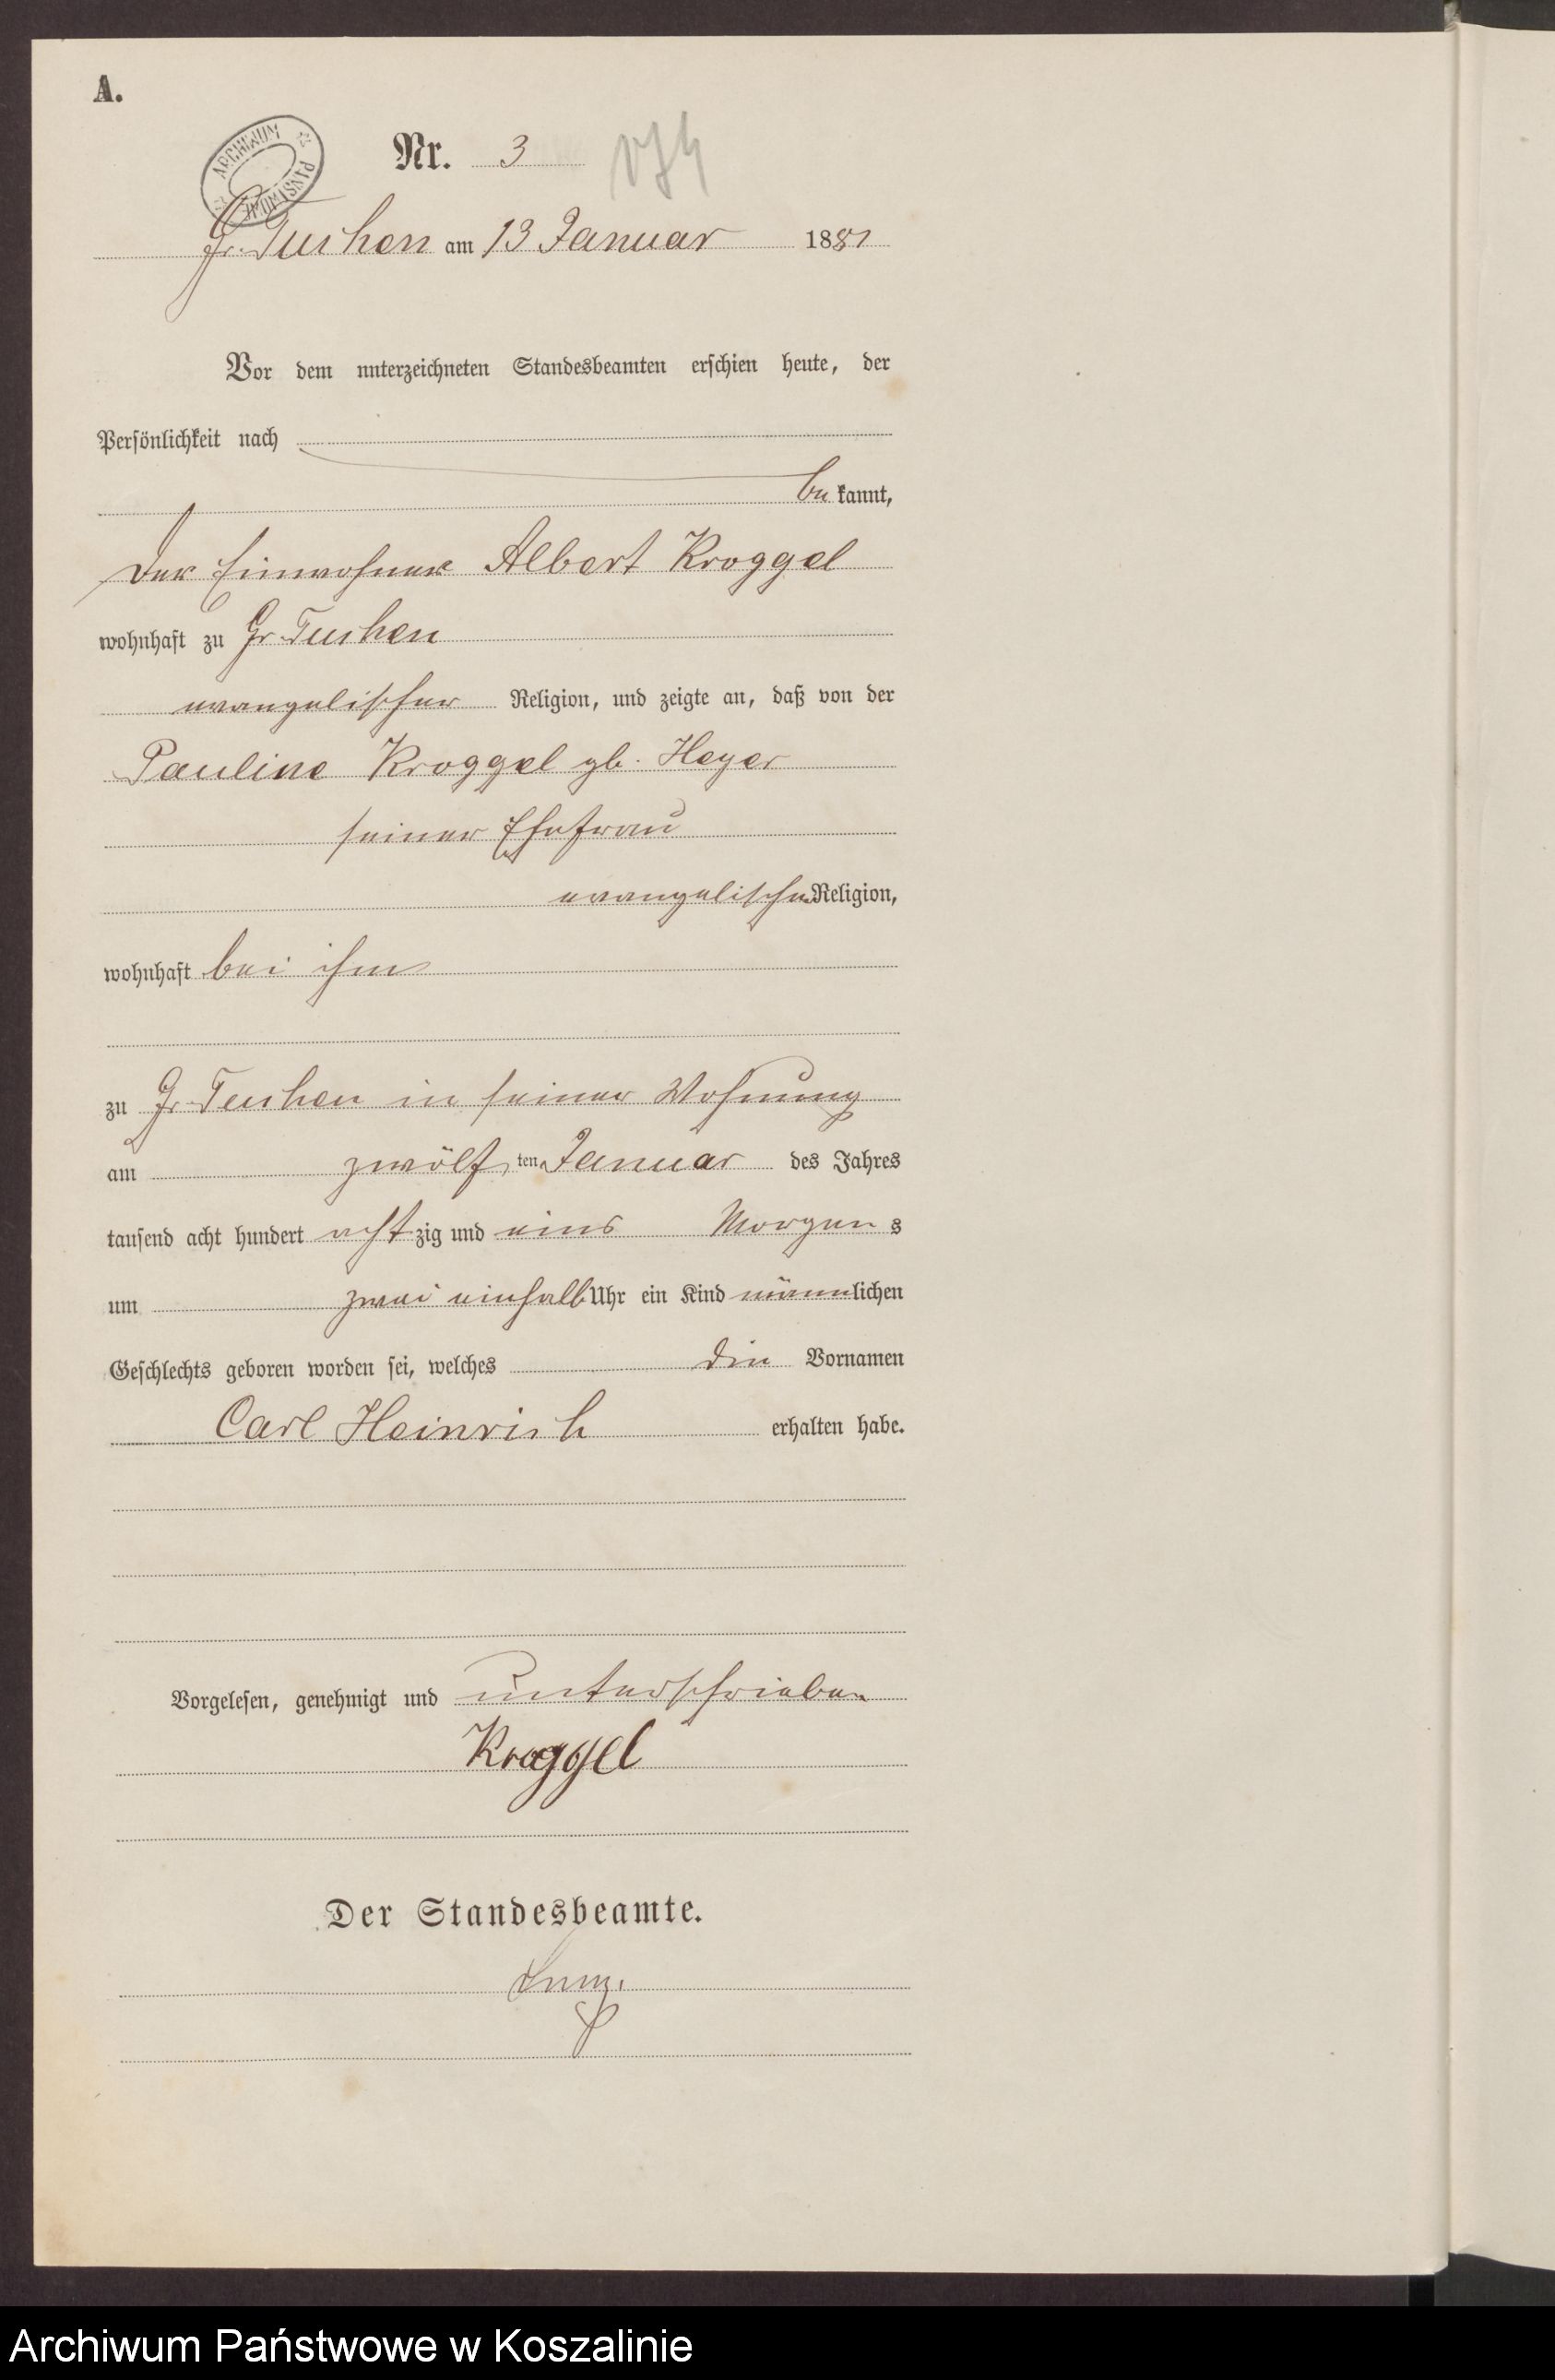 A.
ARCHIWUM PAŃSTWOWE
Nr. 3
Gr. Tuchen am 13 Januar 1881
Vor dem unterzeichneten Standesbeamten erschien heute, der
Persönlichkeit nach
be kannt,
der Einwohner Albert Kroggel
wohnhaft zu Gr. Tuchen
evangelischer Religion, und zeigte an, daß von der
Pauline Kroggel gb. Heyer
seiner Ehefrau
evangelischer Religion,
wohnhaft bei ihm
zu Gr. Tuchen in seiner Wohnung
am zwölf ten Januar des Jahres
tausend acht hundert acht zig und eins Morgen s
um zwei einhalb Uhr ein Kind männ lichen
Geschlechts geboren worden sei, welches die Vornamen
Carl Heinrich erhalten habe.
Vorgelesen, genehmigt und unterschrieben
Kroggel
Der Standesbeamte.
Archiwum Państwowe w Koszalinie